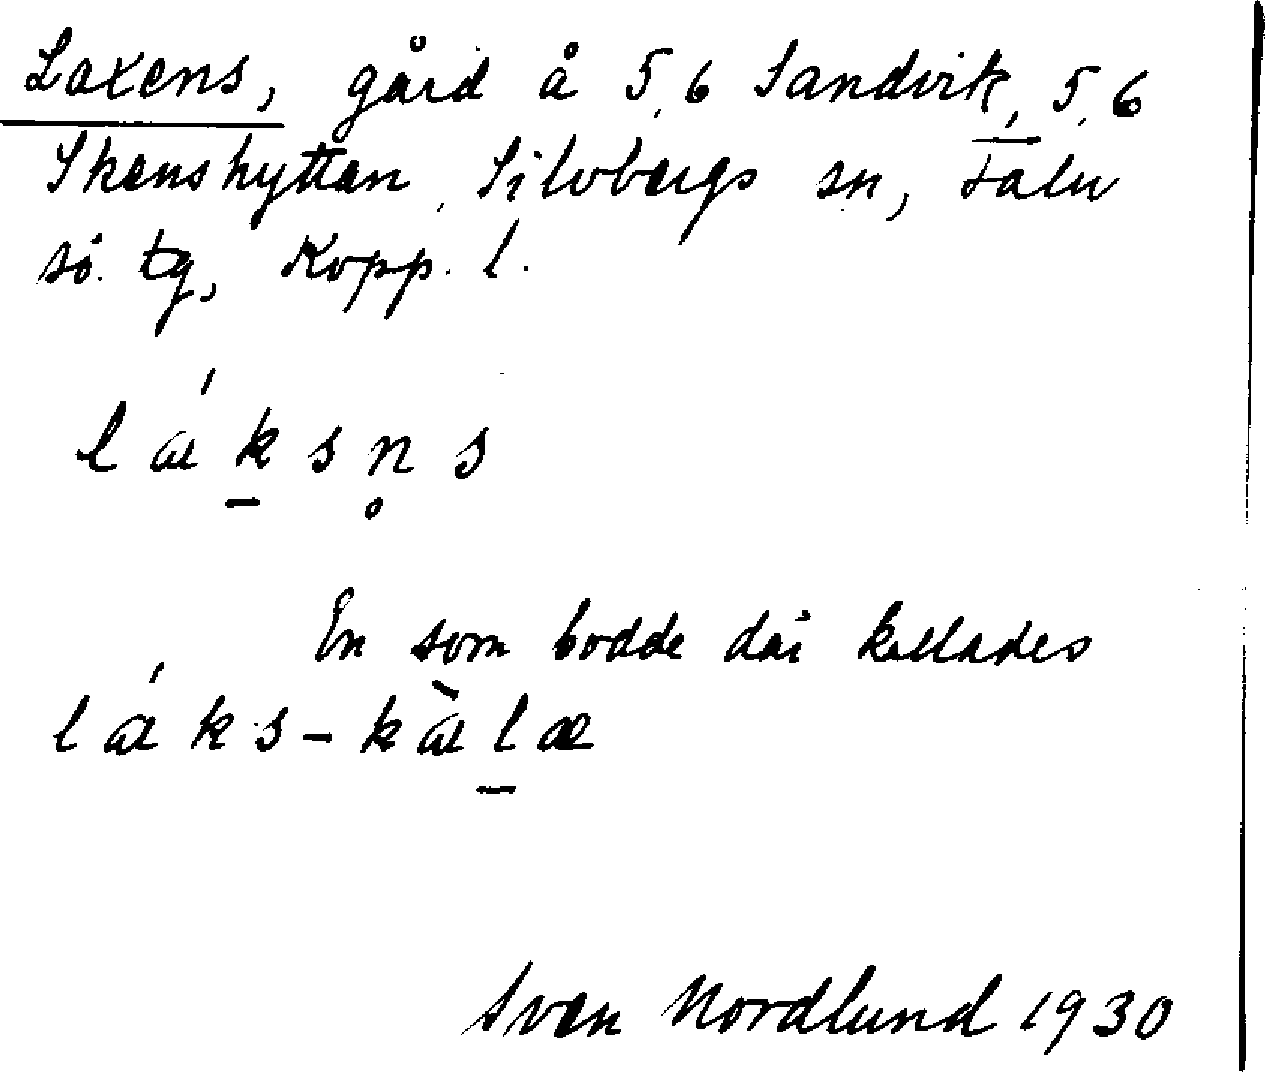 Laxens, gård å 5, 6 Sandvik, 5, 6
Skenshyttan, Silvbergs sn, Falu
sö. tg, Kopp. l.
lák̠sn̥s
En som bodde där kallades
láks-kàl̠æ
Sven Nordlund 1930